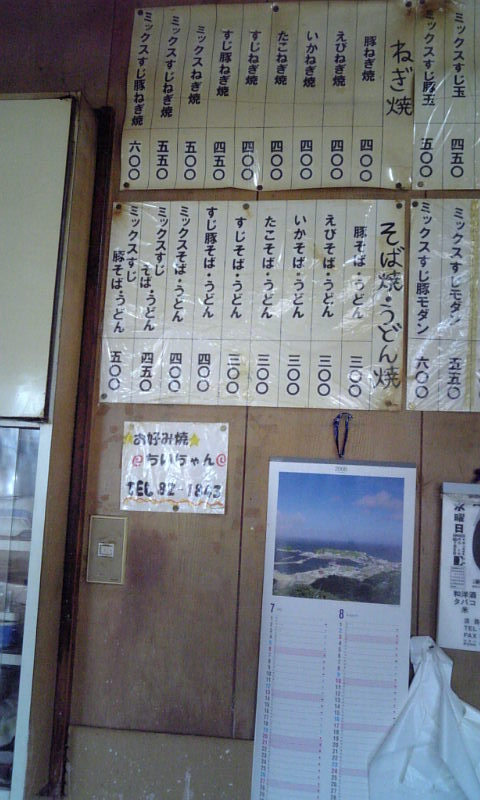 ミックスすじ玉 四五〇
ミックスすじ豚玉 五〇〇
ねぎ焼
豚ねぎ焼 四〇〇
えびねぎ焼 四〇〇
いかねぎ焼 四〇〇
たこねぎ焼 四〇〇
すじねぎ焼 四〇〇
すじ豚ねぎ焼 四五〇
ミックスねぎ焼 五〇〇
ミックスすじねぎ焼 五五〇
ミックスすじ豚ねぎ焼 六〇〇
ミックスすじモダン 五五〇
ミックスすじ豚モダン 六〇〇
そば焼・うどん焼
豚そば・うどん 三〇〇
えびそば・うどん 三〇〇
いかそば・うどん 三〇〇
たこそば・うどん 三〇〇
すじそば・うどん 三〇〇
すじ豚そば・うどん 四〇〇
ミックスそば・うどん 四〇〇
ミックスすじ
そば・うどん 四五〇
ミックスすじ
豚そば・うどん 五〇〇
お好み焼
@ちいちゃん@
TEL 82-1843
7
8
水曜日
和洋酒
タバコ
米
TEL
FAX